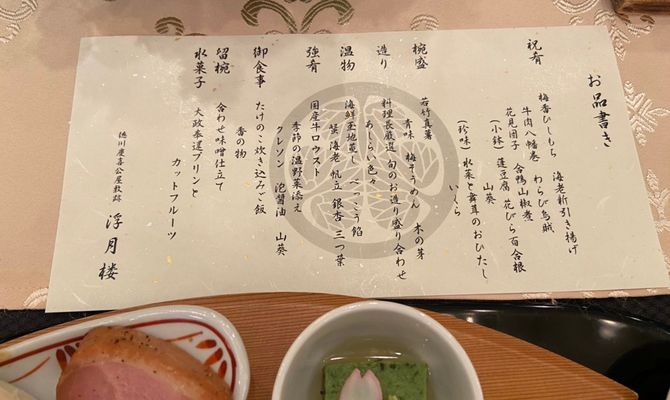 お品書き
祝肴
梅香ひしもち 海老新引き揚げ
牛肉八幡巻 わらび烏賊
花見団子 合鴨山椒煮
(小鉢) 蓬豆腐 花びら百合根
山葵
(珍味) 水菜と舞茸のおひたし
いくら
椀盛
若竹真薯
青味 梅そうめん 木の芽
造り
料理長厳選 旬のお造り盛り合わせ
あしらい色々
温物
海鮮玉地蒸し べっこう餡
蟹 海老 帆立 銀杏 三つ葉
強肴
国産牛ロウスト
季節の温野菜添え
クレソン 泡醤油 山葵
御食事
たけのこ炊き込みご飯
香の物
留椀
合わせ味噌仕立て
水菓子
大政奉還プリンと
カットフルーツ
徳川慶喜公屋敷跡 浮月楼